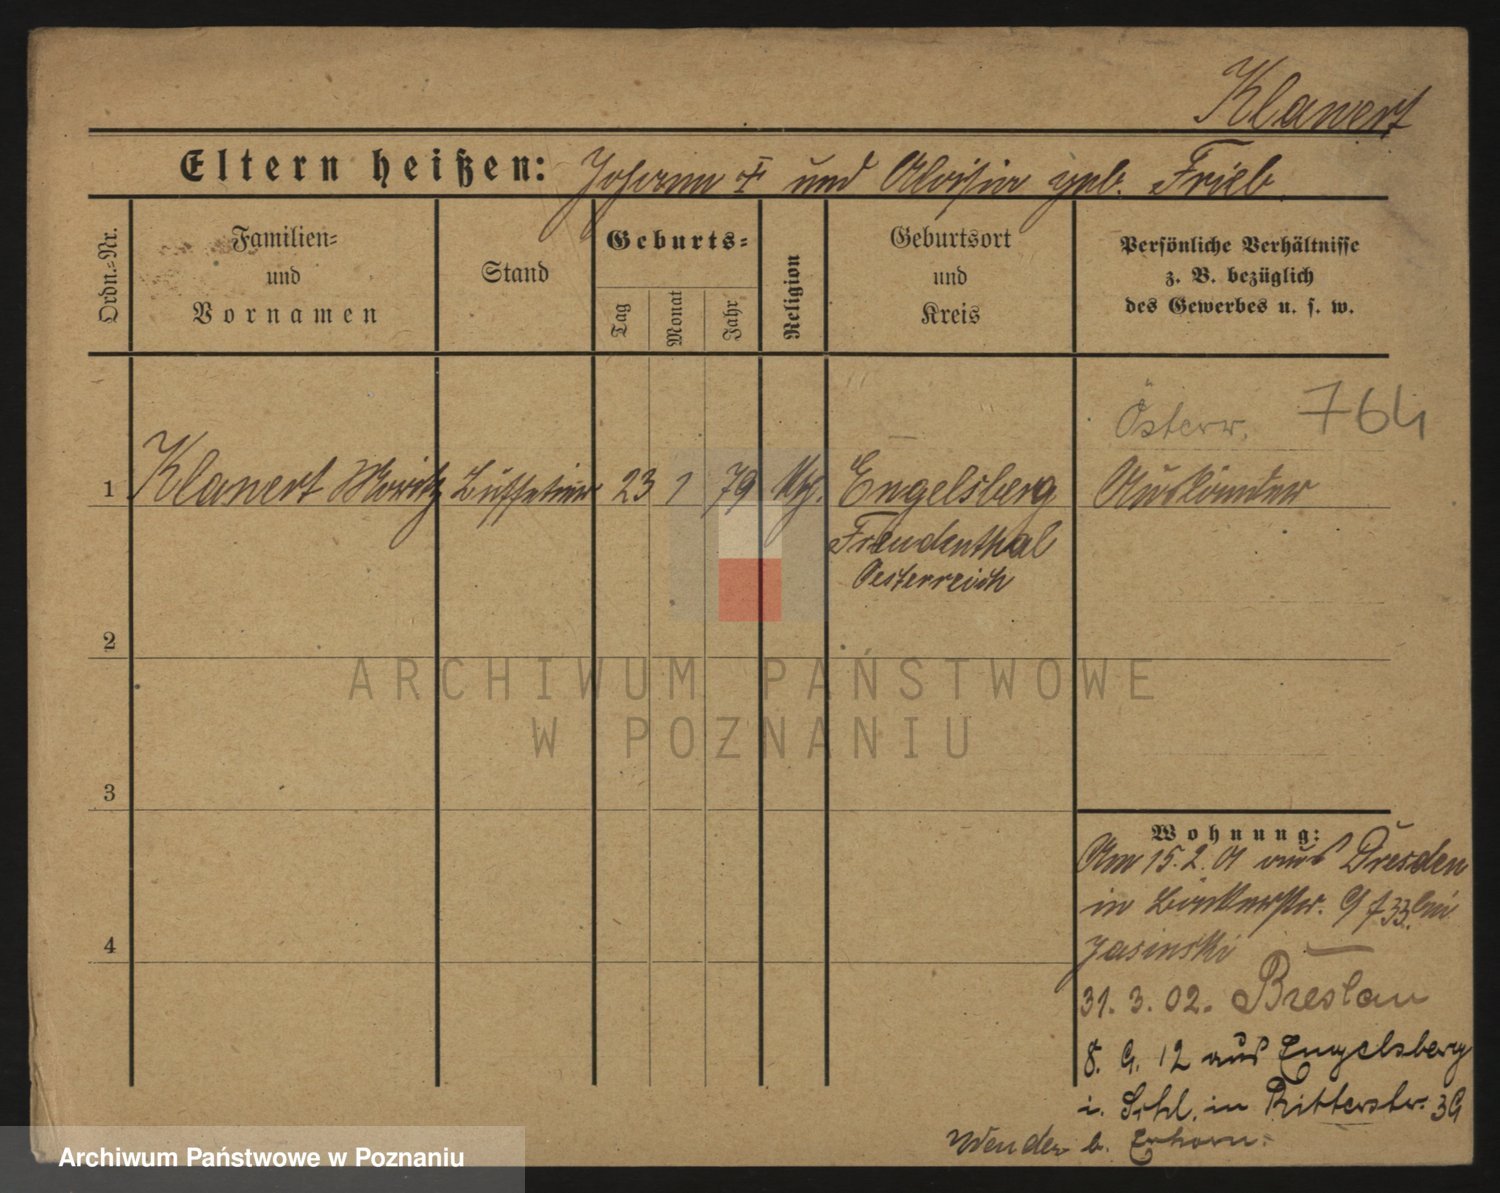 Klanert
Eltern heißen: Johann † und Aloisia geb. Frieb
Ordn.-Nr.
Familien-
und
Vornamen
Stand
Geburts-
Tag
Monat
Jahr
Religion
Geburtsort
und
Kreis
Persönliche Verhältnisse
z. B. bezüglich
des Gewerbes u. s. w.
Österr. 764
1 Klanert Moritz 23 1 79 Engelsberg Ausländer
Freudenthal
Oesterreich
2
3
4
Wohnung:
Am 15.2.01 aus Dresden
in bei
Jasinski
31. 3. 02. Breslau
aus Engelsberg
i. Schl. in Ritterstr.
b.
ARCHIWUM PAŃSTWOWE
W POZNANIU
Archiwum Państwowe w Poznaniu